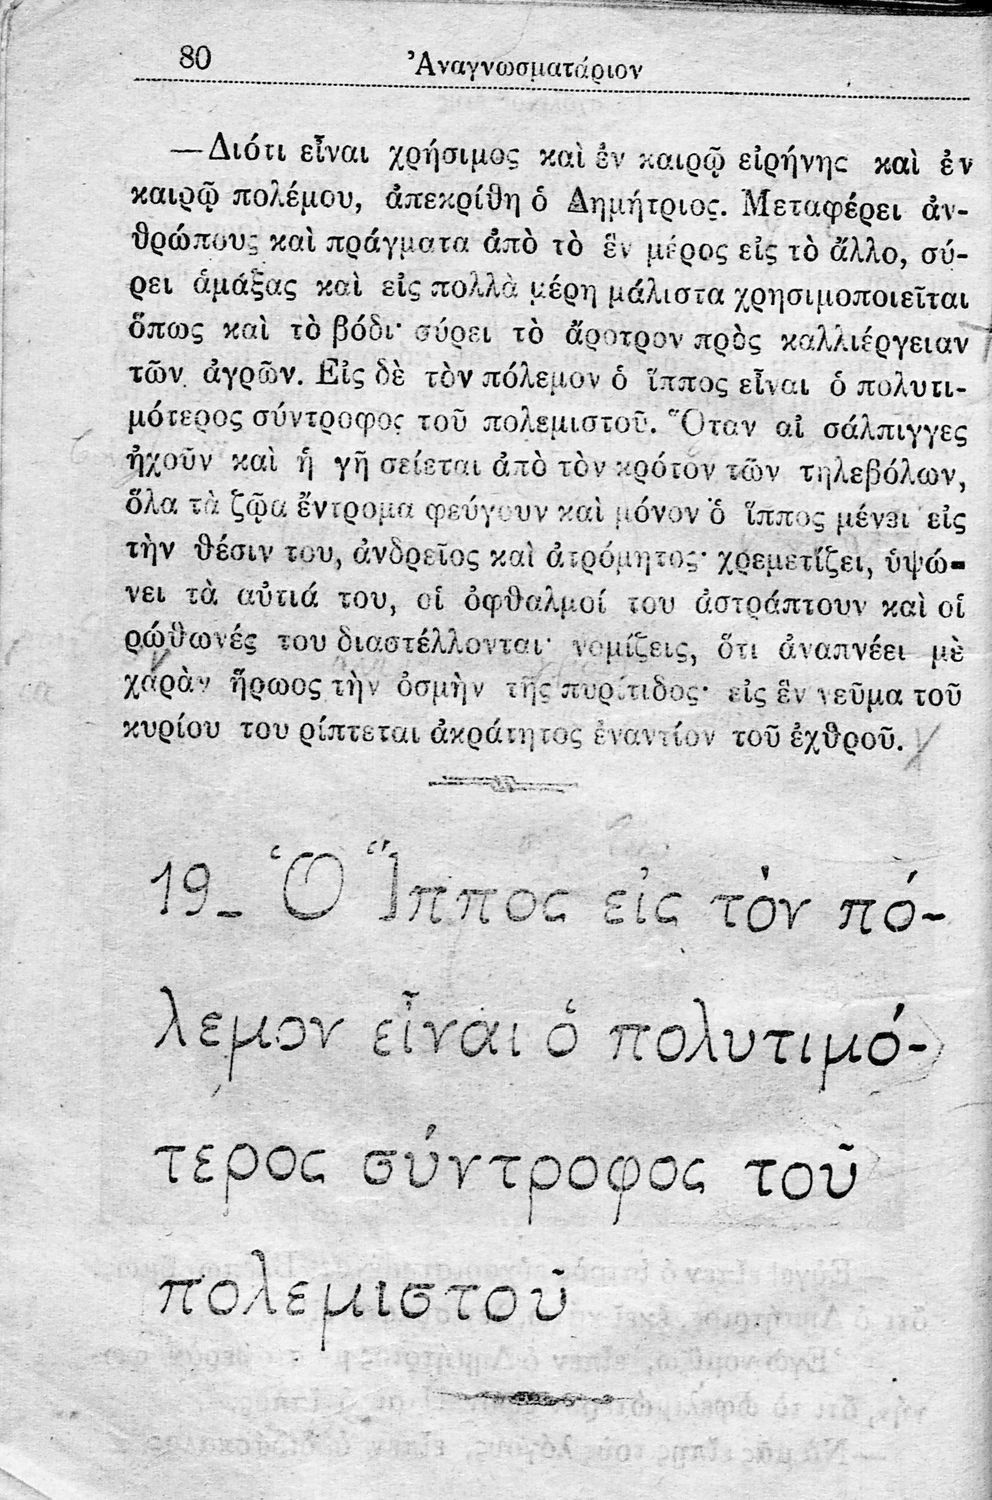 80 Ἀναγνωσματάριον
—Διότι εἶναι χρήσιμος καὶ ἐν καιρῷ εἰρήνης καὶ ἐν
καιρῷ πολέμου, ἀπεκρίθη ὁ Δημήτριος. Μεταφέρει ἀν-
θρώπους καὶ πράγματα ἀπὸ τὸ ἓν μέρος εἰς τὸ ἄλλο, σύ-
ρει ἁμάξας καὶ εἰς πολλὰ μέρη μάλιστα χρησιμοποιεῖται
ὅπως καὶ τὸ βόδι· σύρει τὸ ἄροτρον πρὸς καλλιέργειαν
τῶν ἀγρῶν. Εἰς δὲ τὸν πόλεμον ὁ ἵππος εἶναι ὁ πολυτι-
μότερος σύντροφος τοῦ πολεμιστοῦ. Ὅταν αἱ σάλπιγγες
ἠχοῦν καὶ ἡ γῆ σείεται ἀπὸ τὸν κρότον τῶν τηλεβόλων,
ὅλα τὰ ζῷα ἔντρομα φεύγουν καὶ μόνον ὁ ἵππος μένει εἰς
τὴν θέσιν του, ἀνδρεῖος καὶ ἀτρόμητος· χρεμετίζει, ὑψώ-
νει τὰ αὐτιά του, οἱ ὀφθαλμοί του ἀστράπτουν καὶ οἱ
ρώθωνές του διαστέλλονται· νομίζεις, ὅτι ἀναπνέει μὲ
χαρὰν ἥρωος τὴν ὀσμὴν τῆς πυρίτιδος· εἰς ἓν νεῦμα τοῦ
κυρίου του ρίπτεται ἀκράτητος ἐναντίον τοῦ ἐχθροῦ.
19_ Ὁ Ἵππος εἰς τὸν πό-
λεμον εἶναι ὁ πολυτιμό-
τερος σύντροφος τοῦ
πολεμιστοῦ